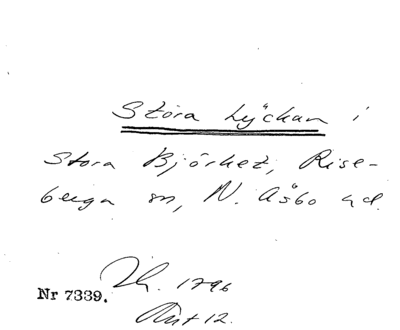 Stora Lyckan i
Stora Björket, Rise-
berga sn, N. Åsbo hd.
Nr 7339. 1796
Rut 12.